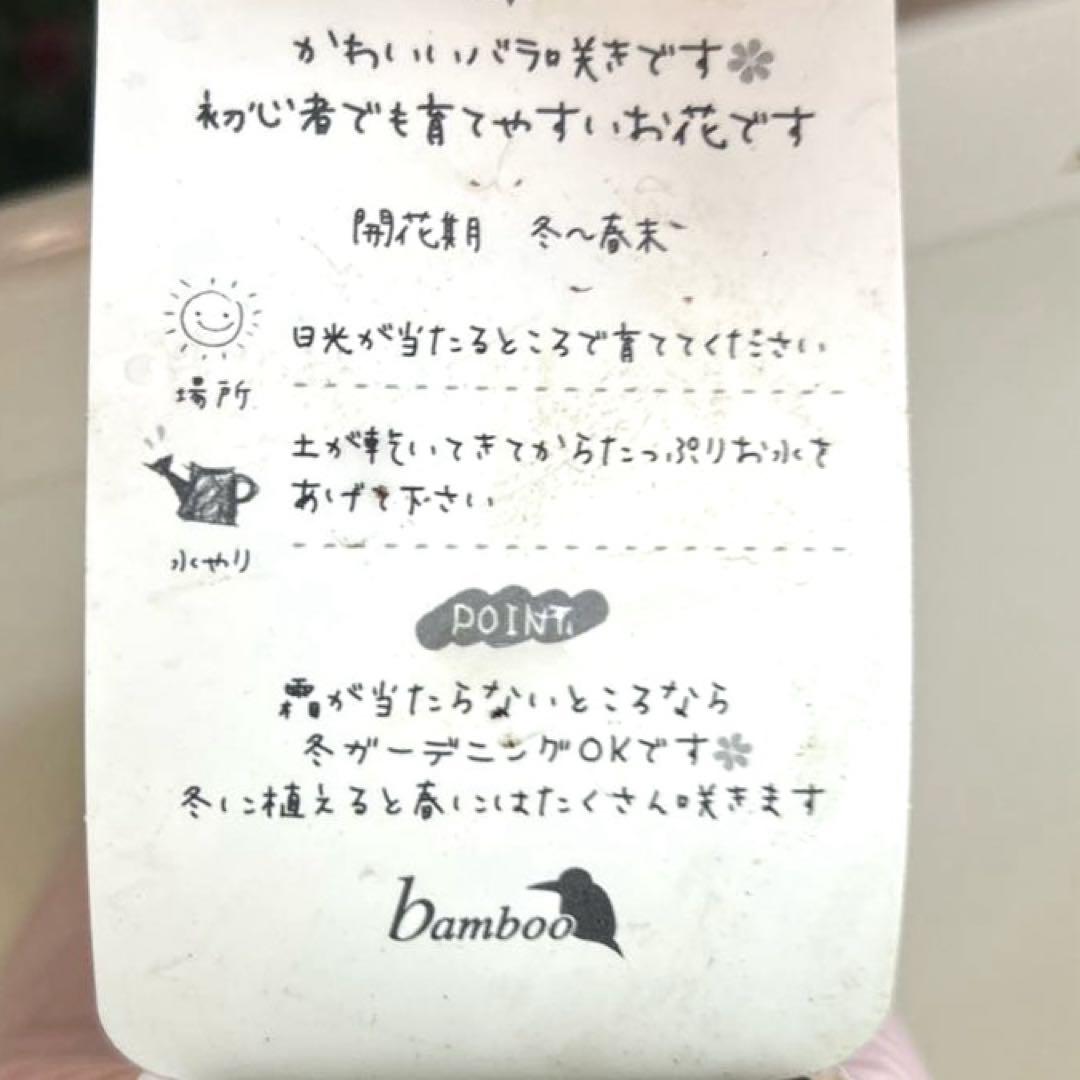 かわいいバラ咲きです
初心者でも育てやすいお花です
開花期 冬〜春末
日光が当たるところで育ててください
場所
土が乾いてきてからたっぷりお水を
あげて下さい
水やり
POINT
霜が当たらないところなら
冬ガーデニングOKです
冬に植えると春にはたくさん咲きます
bamboo